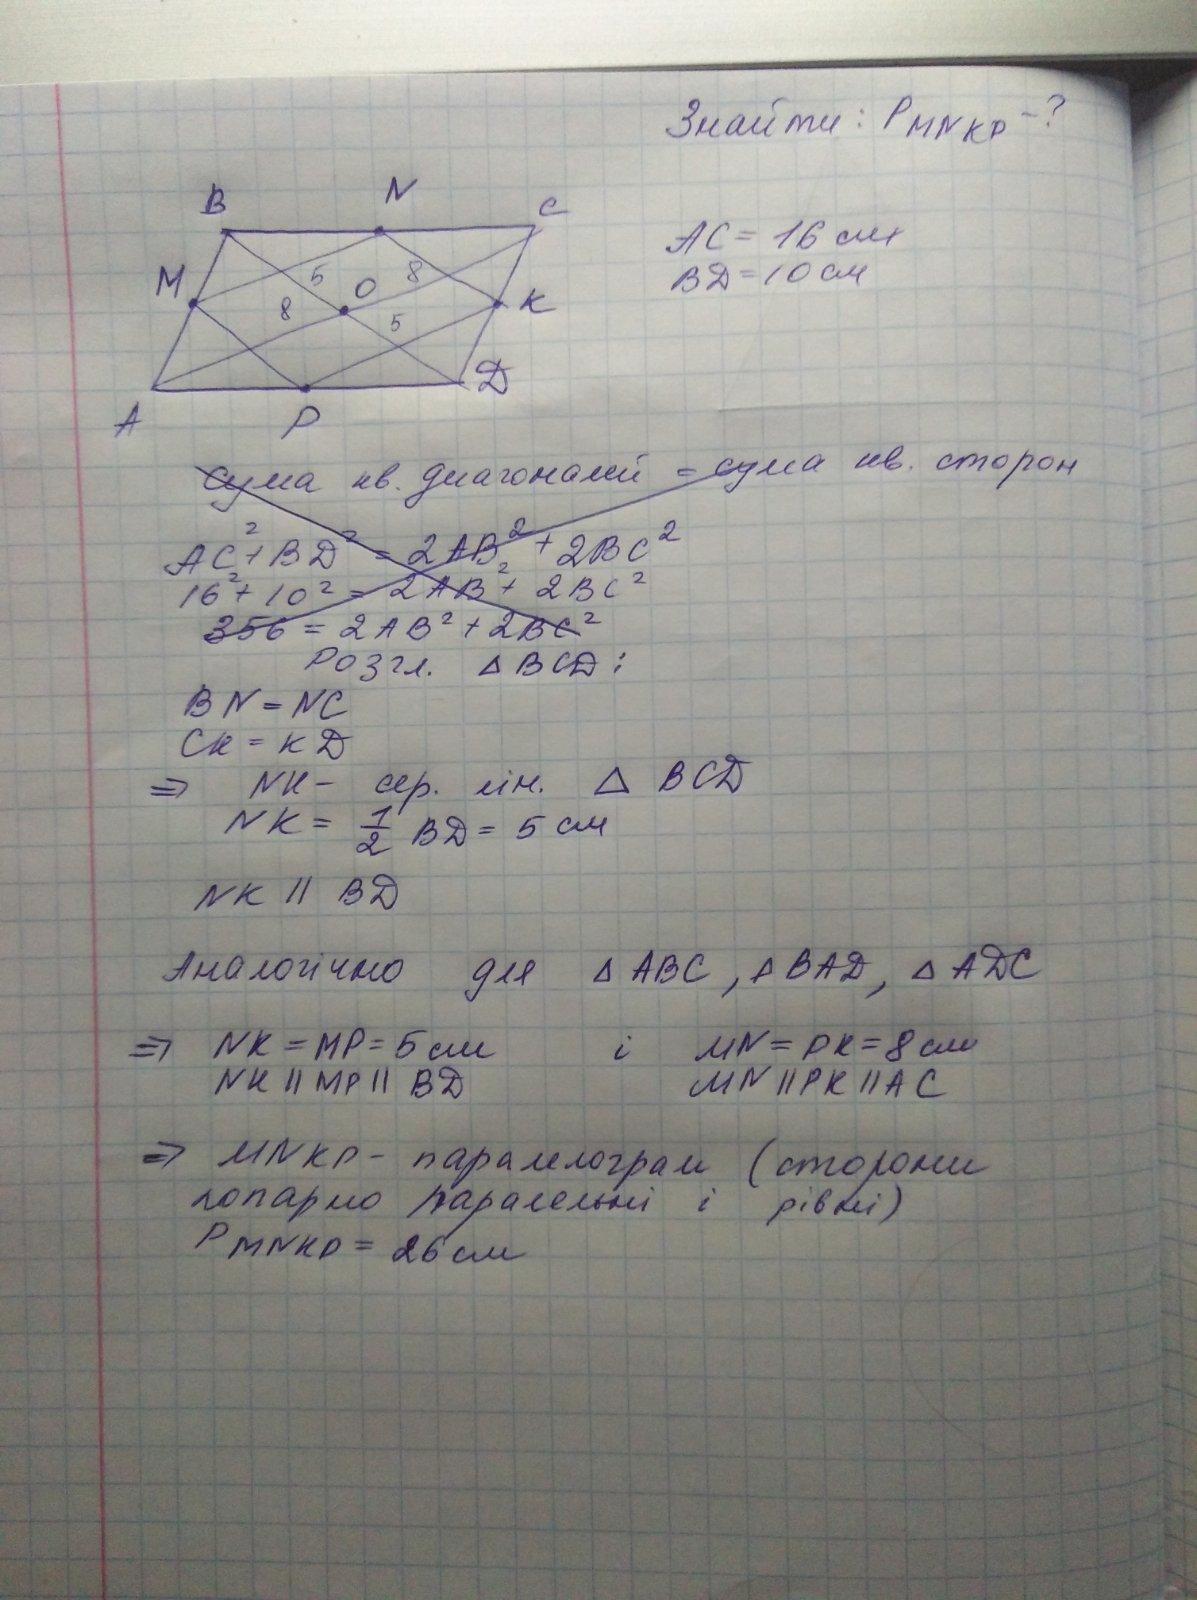 Знайти: P MNKP - ?
B N C
AC = 16 см
BD = 10 см
M 5 8 O K
8 5
A P D
сума кв. диагоналей = сума кв. сторон
AC² + BD² = 2AB² + 2BC²
16² + 10² = 2AB² + 2BC²
356 = 2AB² + 2BC²
Розгл. △ BCD:
BN = NC
CK = KD
⇒ NK - сер. лін. △ BCD
NK = 1/2 BD = 5 см
NK || BD
Аналогічно для △ ABC, △ BAD, △ ADC
⇒ NK = MP = 5 см і MN = PK = 8 см
NK || MP || BD MN || PK || AC
⇒ MNKP - паралелограм (сторони
попарно паралельні і рівні)
P MNKP = 26 см